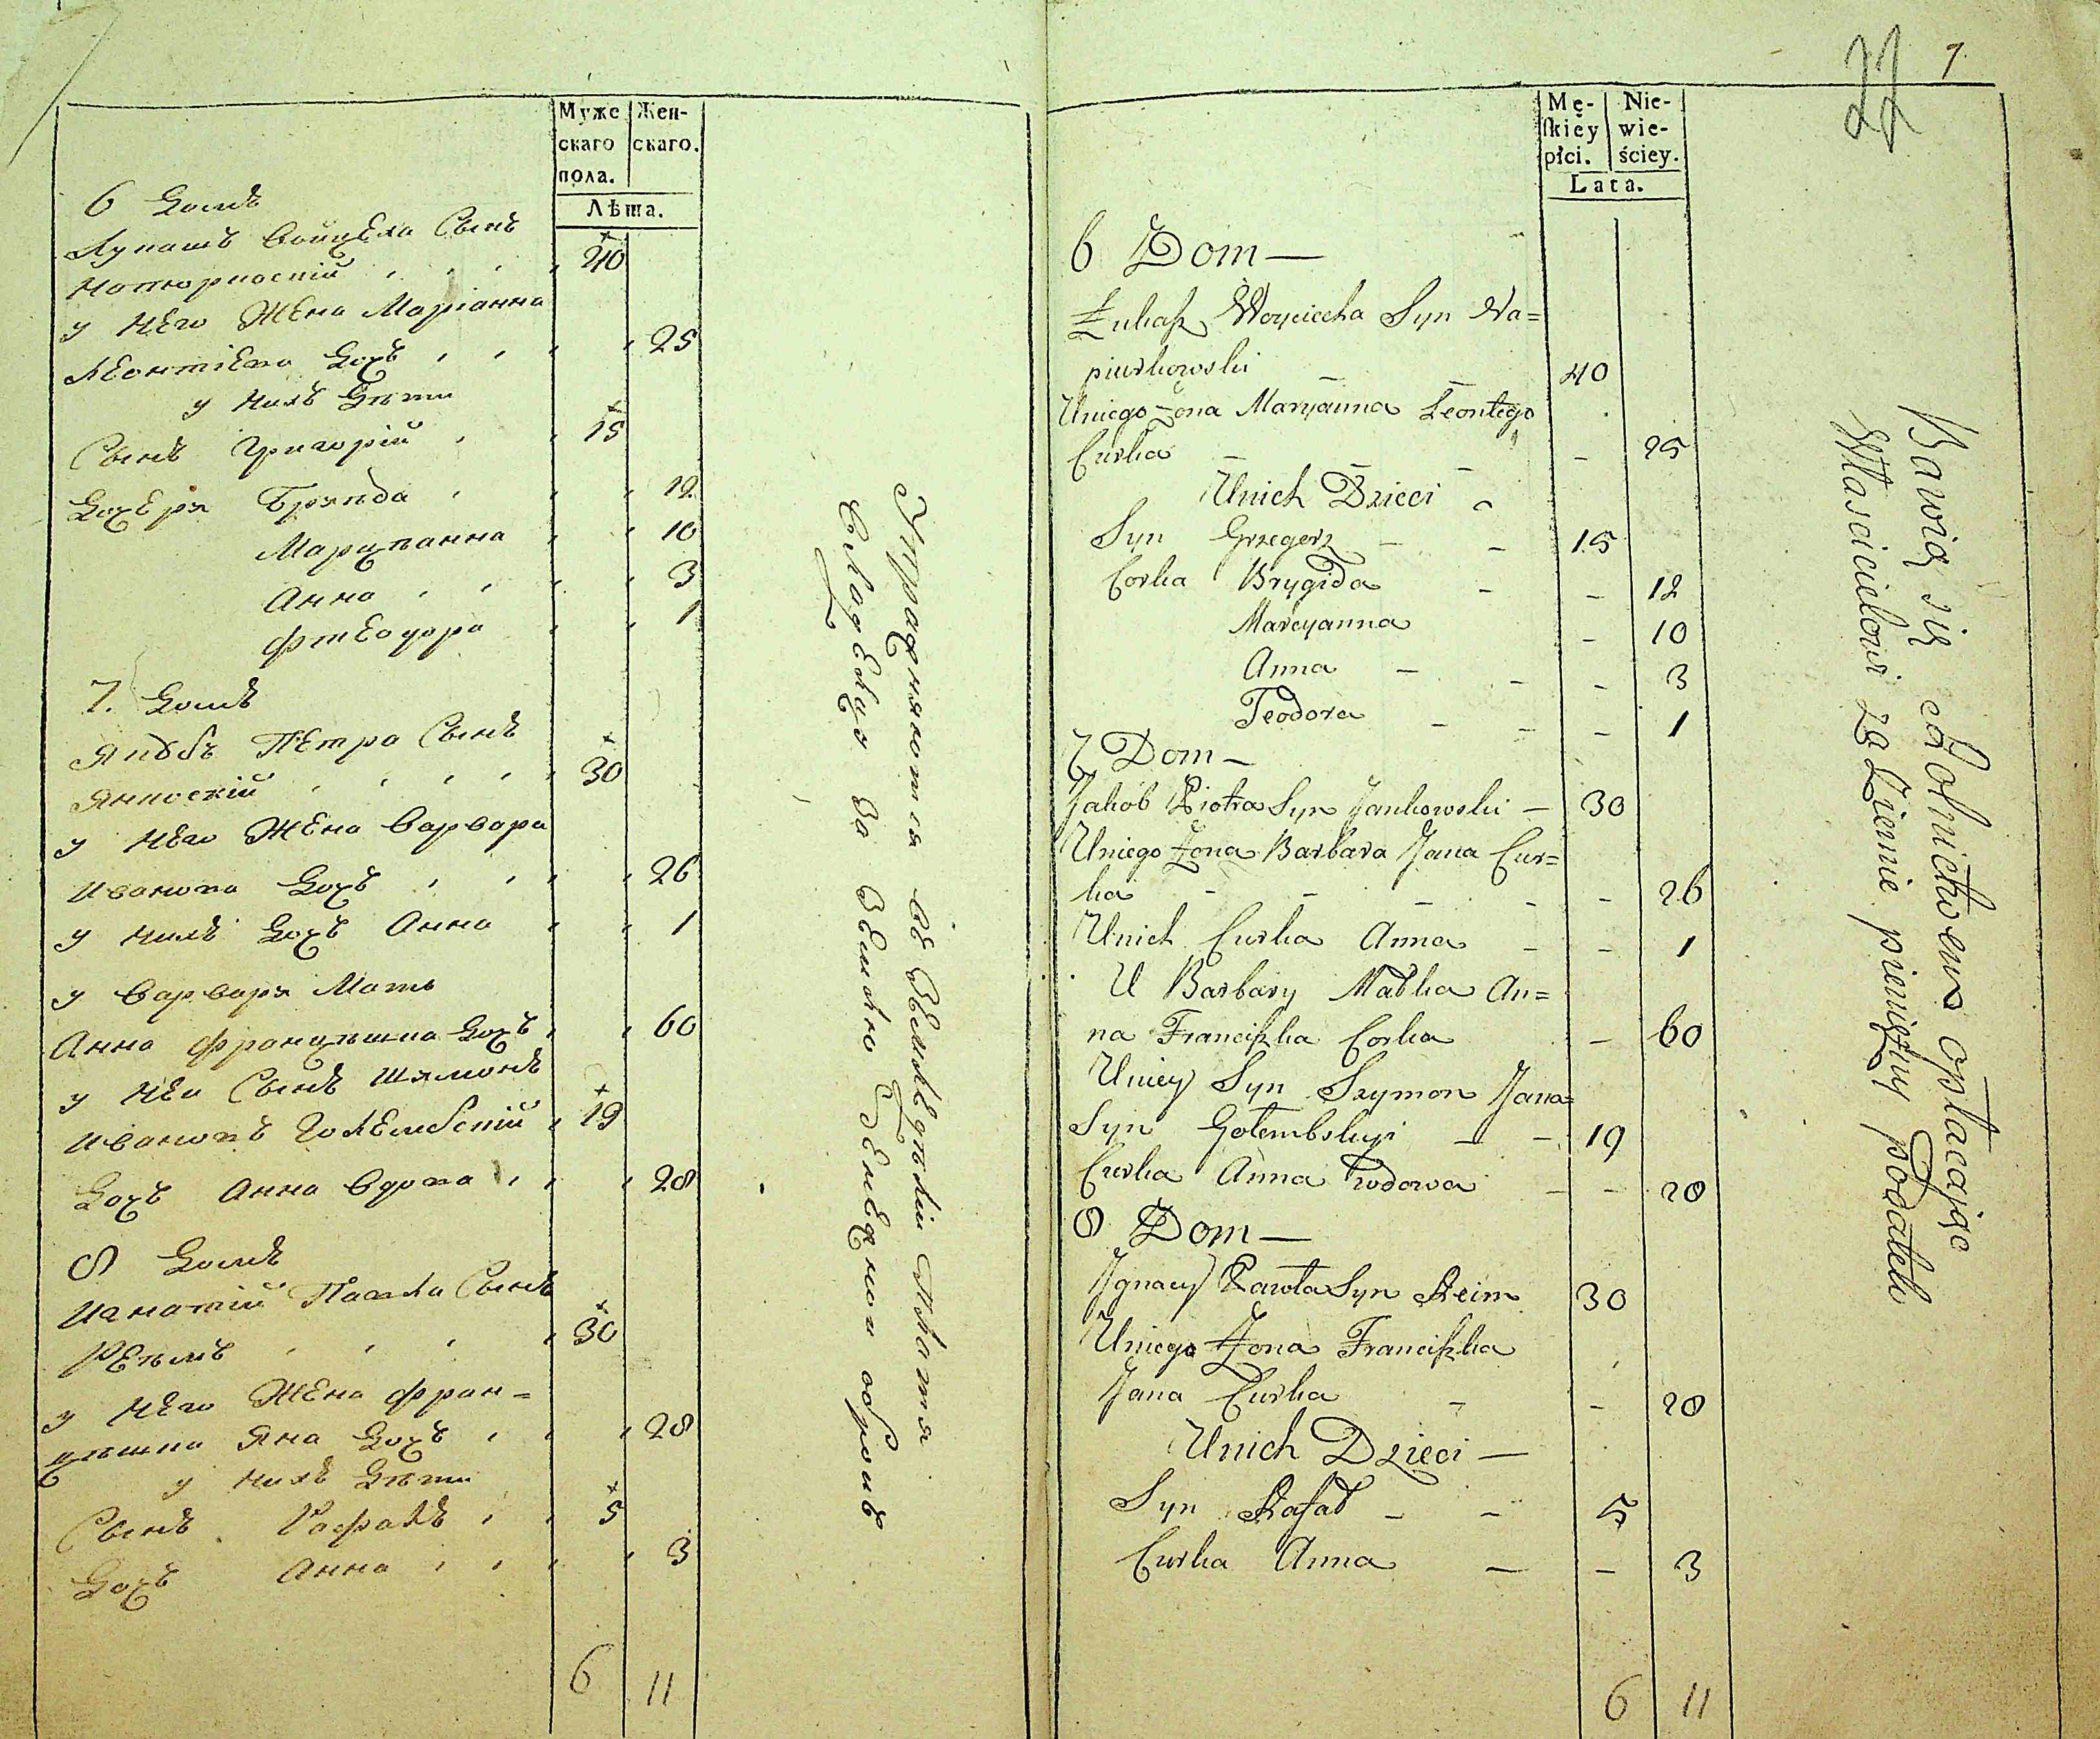 Муже скаго пола. Жен- скаго.
Лѣта.
6 Домъ
Лукашъ Войцѣха Сынъ
Напюркоскій 40
у него Жена Маріанна
Леонтіева Дочъ 25
у нихъ Дѣти
Сынъ Григорій 15
Дочеря Бригида 12
Марцианна 10
Анна 3
Фтеодора 1
7. Домъ
Якобъ Петра Сынъ
Янкоскій 30
у него Жена Варвара
Иванова Дочъ 26
у нихъ Дочъ Анна 1
у Варвары Мать
Анна Францишка Дочъ 60
у неи Сынъ Шимонъ
Ивановъ Голембскій 19
Дочъ Анна Вдова 28
8 Домъ
Игнатій Павла Сынъ
Реимъ 30
у него Жена Фран=
цишка Яна Дочъ 28
у нихъ Дѣти
Сынъ Рафалъ 5
Дочъ Анна 3
6 11
Упражняются въ земледѣліи платя
Владельцу за землю денежнои оброкъ
77 7.
Mę- skiéy płci. Nie- wie- ściey.
Lata.
6 Dom —
Łukasz Woyciecha Syn Na=
piurkowski 40
Uniego żona Maryanna Leontego
Curka 25
Unich Dzieci
Syn Grzegorz 15
Corka Brygida 12
Marcyanna 10
Anna 3
Teodora 1
7 Dom —
Jakób Piotra Syn Jankowski — 30
Uniego Żona Barbara Jana Cur=
ka 26
Unich Curka Anna 1
U Barbary Matka An=
na Franciszka Corka 60
Uniey Syn Szymon Jana
Syn Gołembskyi 19
Curka Anna wdowa 28
8 Dom —
Jgnacy Pawła Syn Reim 30
Uniego Żona Franciszka
Jana Curka 28
Unich Dzieci —
Syn Rafał 5
Curka Anna 3
6 11
Bawią się Rolnictwem opłacając
Właścicielowi za Ziemie pieniężny podatek